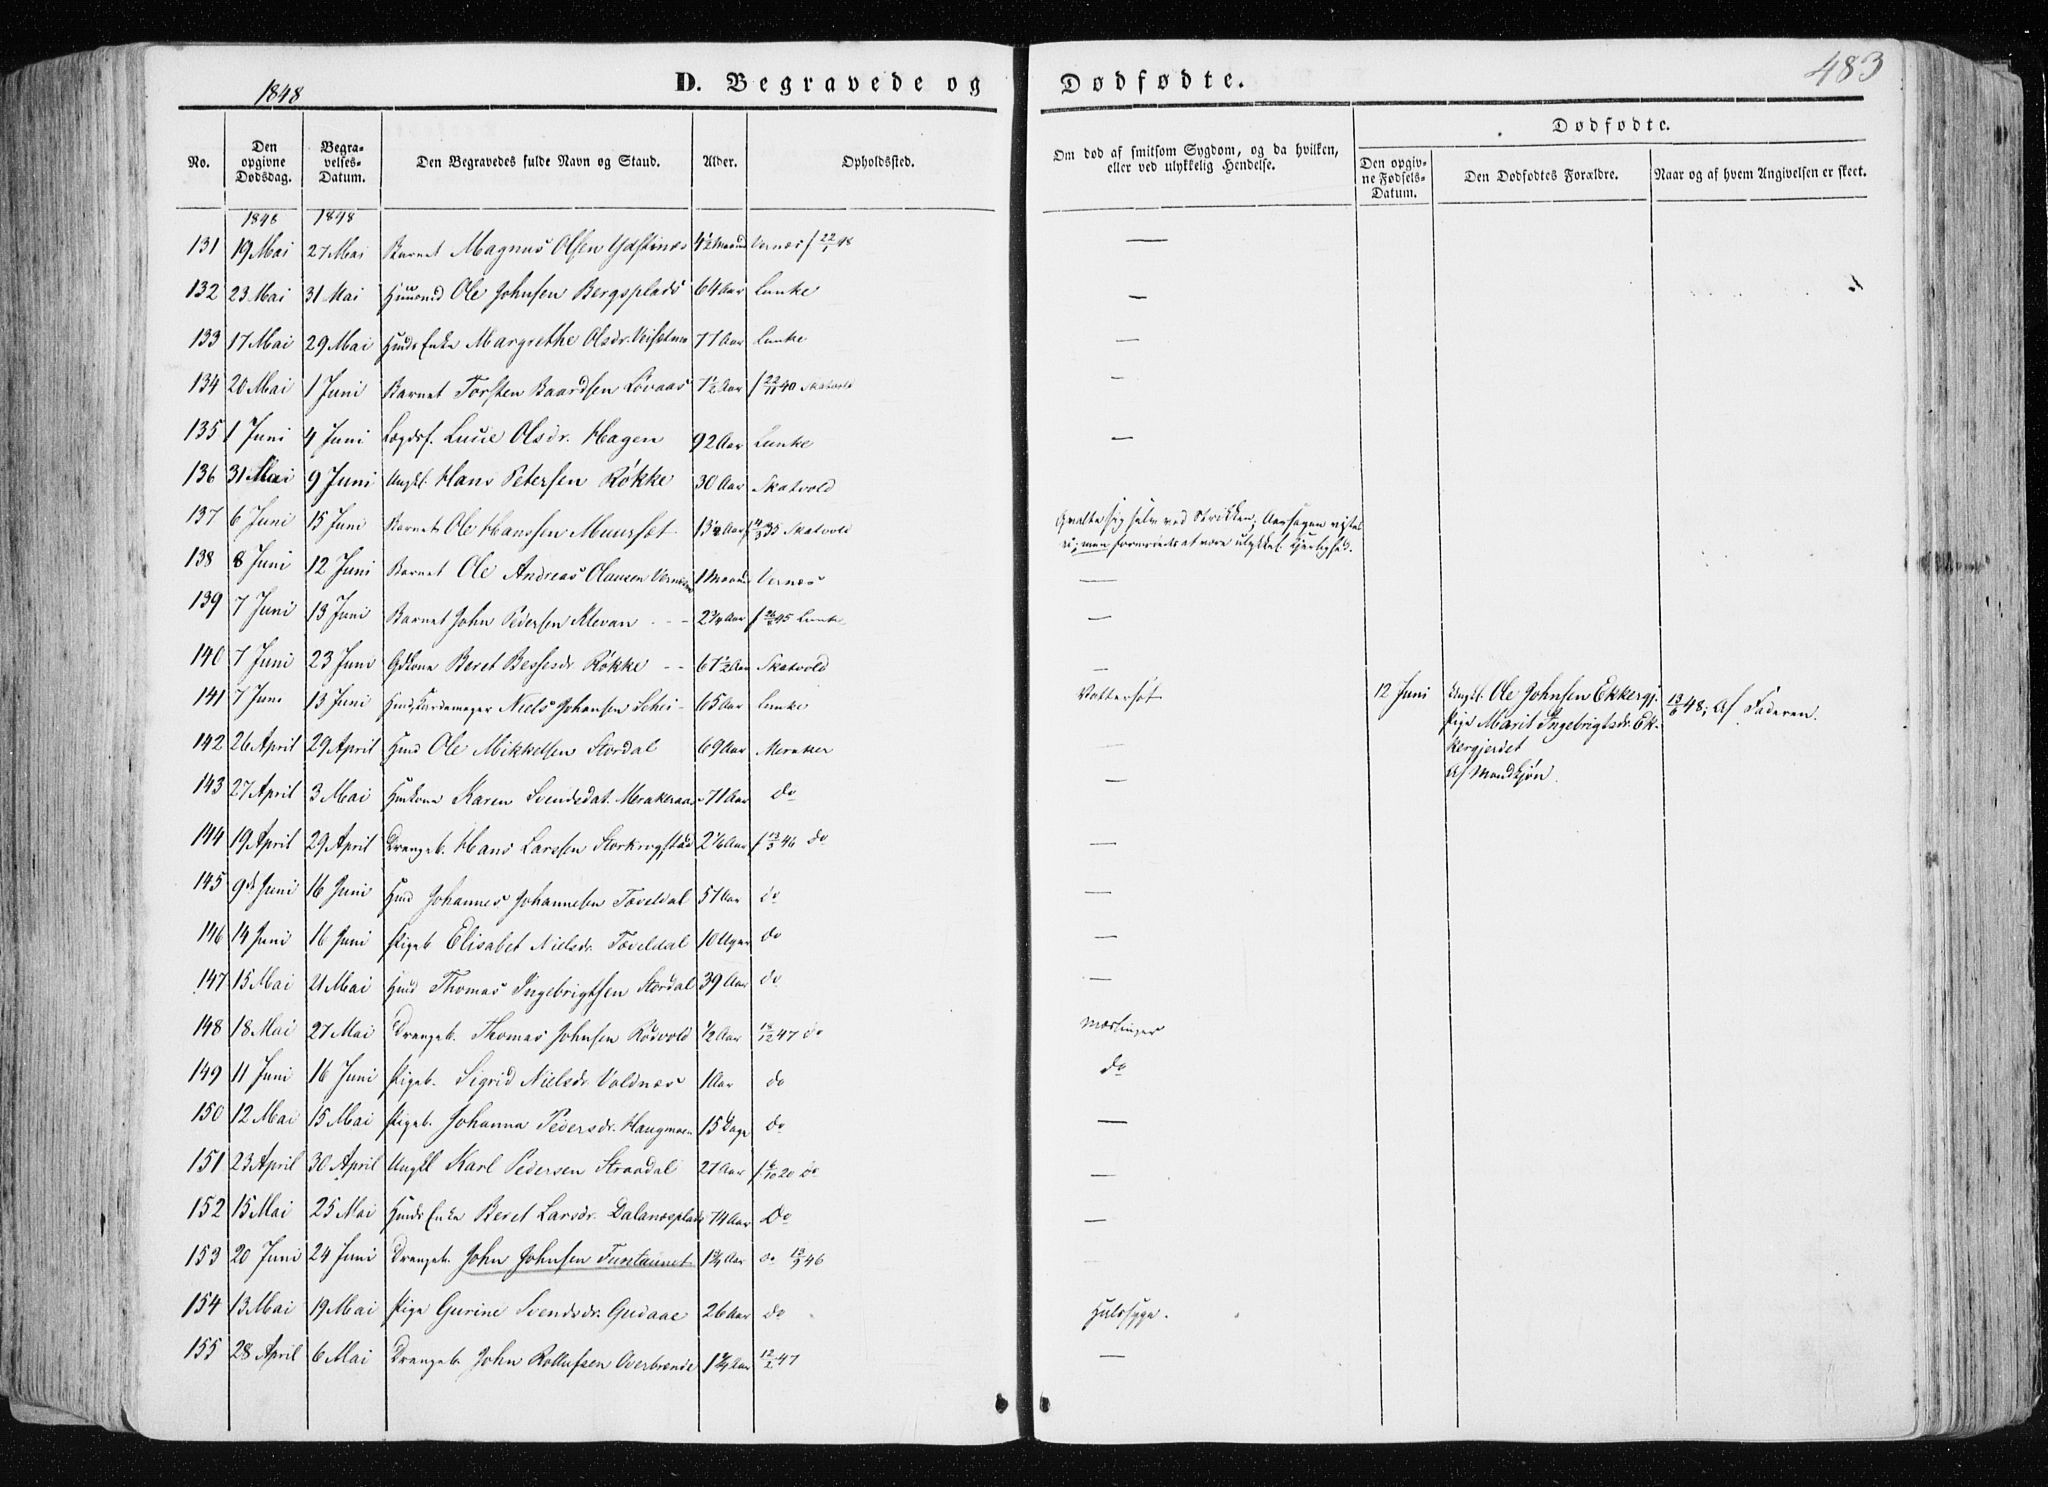 1848
D. Begravede og Dødfødte.
483
No.
Den opgivne Dødsdag.
Begravelses-Datum.
Den Begravedes fulde Navn og Stand.
Alder.
Opholdssted.
Om død af smitsom Sygdom, og da hvilken, eller ved ulykkelig Hendelse.
Dødfødte.
Den opgivne Fødsels-Datum.
Den Dødfødtes Forældre.
Naar og af hvem Angivelsen er skeet.
1848 1848
131 19 Mai 27 Mai Barnet Magnus Olsen 4½ Maand Vernæs f 22/1 48 —
132 23 Mai 31 Mai Huusmd Ole Johnsen Bergsplads 64 Aar Lanke —
133 17 Mai 29 Mai Huuds Enke Margrethe Olsdr. 77 Aar Lanke —
134 20 Mai 1 Juni Barnet Torsten Baardsen Løvaas 7½ Aar f 22/11 40 Skatvold -
135 1 Juni 4 Juni Lægdsf. Lucie Olsdr. Hagen 92 Aar Lanke —
136 31 Mai 9 Juni Ungkl. Hans Petersen Røkke 30 Aar Skatvold
137 6 Juni 15 Juni Barnet Ole Hanssen Muursæt 13¼ Aar 35 Skatvold Qvalte sig selv ved Strikken; Aarsagen vides
ei; man formoder at være ulykkel. Kjerlighed.
138 8 Juni 12 Juni Barnet Ole Andreas Olausen 1 Maaned Vernæs —
139 7 Juni 13 Juni Barnet John Pedersen Klevan - - - 2¾ Aar 45 Lanke —
140 7 Juni 23 Juni Gdkone Beret Bersvsdr Røkke - - 67½ Aar Skatvold —
141 7 Juni 13 Juni Niels Johansen Schei - 65 Aar Lanke Vattersot 12 Juni Ungkl. Ole Johnsen Ekkergj. 13/6 48; Af Faderen.
Pige Marit Ingebrigtsdr. Ek-
kergjerdet
Af Mandkjøn.
142 26 April 29 April Huud Ole Mikkelsen Stordal 69 Aar Meraker —
143 27 April 3 Mai Huukone Karen Svendsdat. Merakeraas 71 Aar do —
144 19 April 29 April Drengeb. Hans Larssen 2 1/6 Aar f 13/3 46 do —
145 9de Juni 16 Juni Huud Johannes Johannesen Tæveldal 57 Aar do —
146 14 Juni 16 Juni Pigeb. Elisabet Nielsdr. Tæveldal 10 Uger do —
147 15 Mai 21 Mai Huud Thomas Ingebrigtsen Stordal 39 Aar do —
148 18 Mai 27 Mai Drengeb. Thomas Johnsen Rødvold ½ Aar 18/12 47 do Mæslinger
149 11 Juni 16 Juni Pigeb. Sigrid Nielsdr. Voldnæs 1 Aar do do
150 12 Mai 15 Mai Pigeb. Johanna Pedersdr. Haugmoen 15 Dage do —
151 23 April 30 April Ungkl Karl Pedersen Straadal 27 Aar 20 do —
152 15 Mai 25 Mai Huuds Enke Beret Larsdr. Dalanesplads 74 Aar Do —
153 20 Juni 24 Juni Drengeb. John Johnsen 1¾ Aar do 46
154 13 Mai 19 Mai Pige Gurine Svendsdr. Gudaae 26 Aar do Halssyge.
155 28 April 6 Mai Drengeb. John 1¼ Aar 12/2 47 —